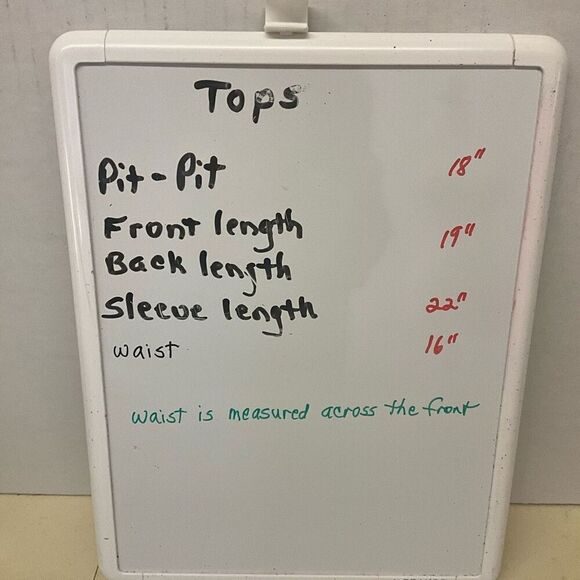 Tops
Pit-Pit 18"
Front length 19"
Back length
Sleeve length 22"
waist 16"
waist is measured across the front